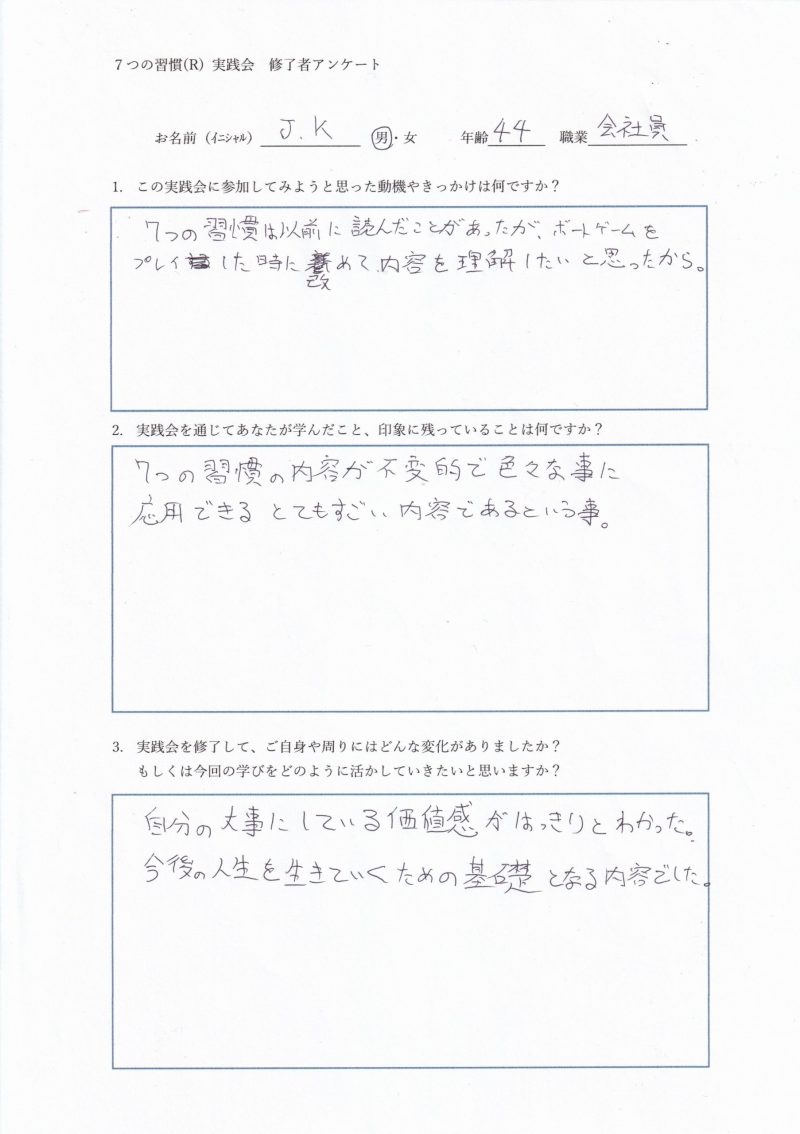 7つの習慣(R) 実践会　修了者アンケート
お名前（ｲﾆｼｬﾙ） J.K 男・女 年齢 44 職業 会社員
1. この実践会に参加してみようと思った動機やきっかけは何ですか？
7つの習慣は以前に読んだことがあったが、ボードゲームを
プレイした時に改めて内容を理解したいと思ったから。
2. 実践会を通じてあなたが学んだこと、印象に残っていることは何ですか？
7つの習慣の内容が不変的で色々な事に
応用できるとてもすごい内容であるという事。
3. 実践会を修了して、ご自身や周りにはどんな変化がありましたか？
もしくは今回の学びをどのように活かしていきたいと思いますか？
自分の大事にしている価値感がはっきりとわかった。
今後の人生を生きていくための基礎となる内容でした。